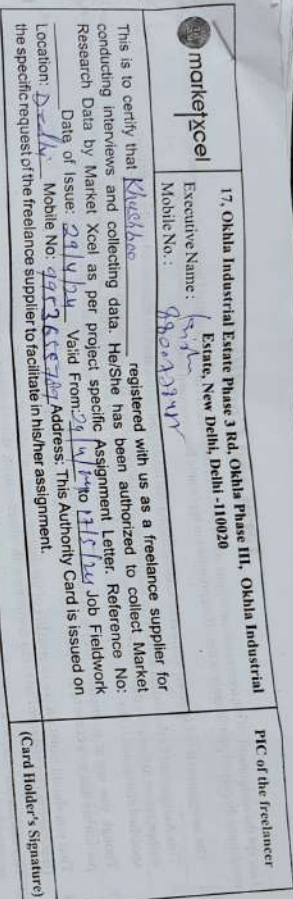 17, Okhla Industrial Estate Phase 3 Rd, Okhla Phase III, Okhla Industrial
Estate, New Delhi, Delhi -110020
marketxcel
Executive Name :
Mobile No. :
PIC of the freelancer
This is to certify that Khushboo registered with us as a freelance supplier for
conducting interviews and collecting data. He/She has been authorized to collect Market
Research Data by Market Xcel as per project specific Assignment Letter. Reference No:
Date of Issue: 29/4/24 Valid From: 29/4/24 to 17/5/24 Job Fieldwork
Location: Delhi Mobile No: Address: This Authority Card is issued on
the specific request of the freelance supplier to facilitate in his/her assignment.
(Card Holder's Signature)